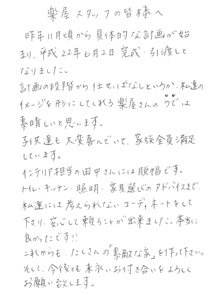 楽屋スタッフの皆様へ
昨年11月頃から具体的な計画が始
まり、平成22年6月2日完成・引渡しと
なりました。
計画の段階から仕せばなしというか、私達の
イメージを形にしてくれる楽屋さんのウデは
素晴しいと思います。
子供達も大変喜んでいて、家族全員満足
しています。
インテリア担当の田中さんには脱帽です。
トイレ・キッチン・照明・家具選びのアドバイスまで、
私達には考えられないコーディネートをして
下さり、安心して頼ることが出来ました。本当に
良かったです!!
これからも、たくさんの「素敵な家」を作って下さい。
そして、今後とも末永いお付き合いをよろしく
お願い致します。